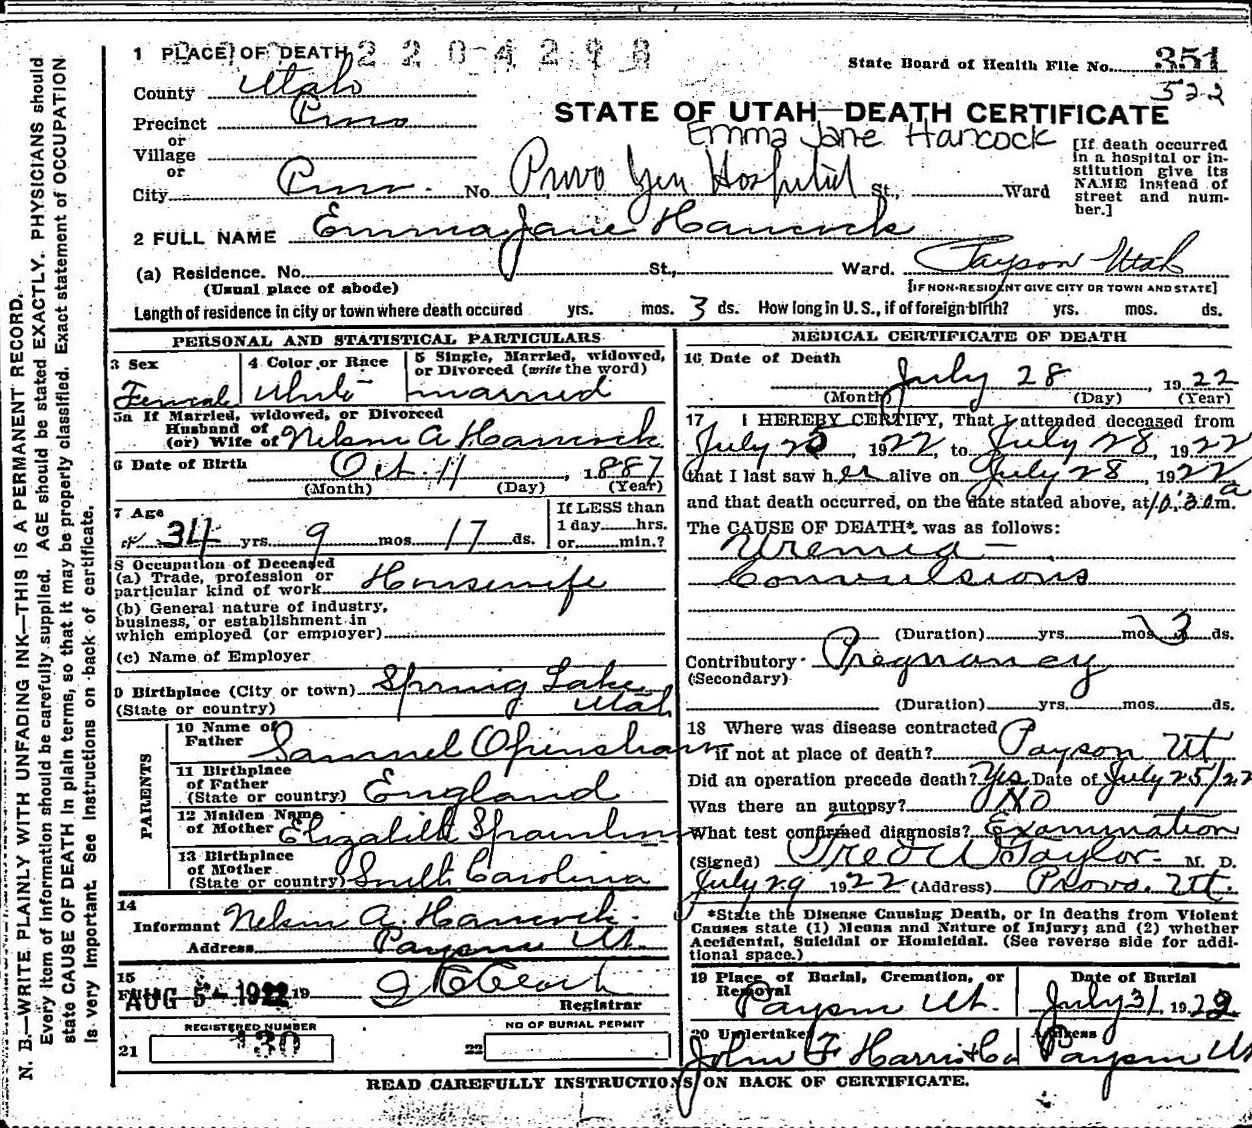 N. B.—WRITE PLAINLY WITH UNFADING INK—THIS IS A PERMANENT RECORD.
Every item of information should be carefully supplied. AGE should be stated EXACTLY. PHYSICIANS should
state CAUSE OF DEATH in plain terms, so that it may be properly classified. Exact statement of OCCUPATION
is very important. See instructions on back of certificate.
1 PLACE OF DEATH
State Board of Health File No. 351
522
County Utah
STATE OF UTAH—DEATH CERTIFICATE
Precinct Provo
or
Village
or
Emma Jane Hancock
[If death occurred
in a hospital or in-
stitution give its
NAME instead of
street and num-
ber.]
City Provo. No. Provo Gen Hospital St., Ward
2 FULL NAME Emma Jane Hancock
(a) Residence. No. St., Ward. Payson Utah
(Usual place of abode)
[IF NON-RESIDENT GIVE CITY OR TOWN AND STATE]
Length of residence in city or town where death occured yrs. mos. 3 ds. How long in U.S., if of foreign birth? yrs. mos. ds.
PERSONAL AND STATISTICAL PARTICULARS
3 Sex
Female
4 Color or Race
White
5 Single, Married, widowed,
or Divorced (write the word)
married
5a If Married, widowed, or Divorced
Husband of
(or) Wife of Nelson A Hancock
6 Date of Birth Oct. 11, 1887
(Month) (Day) (Year)
7 Age
34 yrs. 9 mos 17 ds.
If LESS than
1 day hrs.
or min.?
8 Occupation of Deceased
(a) Trade, profession or
particular kind of work Housewife
(b) General nature of industry,
business, or establishment in
which employed (or employer)
(c) Name of Employer
9 Birthplace (City or town) Spring Lake
(State or country) Utah
PARENTS
10 Name of
Father Samuel Openshaw
11 Birthplace
of Father
(State or country) England
12 Maiden Name
of Mother Elizabeth
13 Birthplace
of Mother
(State or country) South Carolina
14
Informant Nelson A. Hancock
Address Payson Ut.
15
AUG 5- 1922 19
Registrar
REGISTERED NUMBER
21 130
NO OF BURIAL PERMIT
22
MEDICAL CERTIFICATE OF DEATH
16 Date of Death
July 28, 1922
(Month) (Day) (Year)
17 I HEREBY CERTIFY, That I attended deceased from
July 25, 1922, to July 28, 1922
that I last saw her alive on July 28, 1922
and that death occurred, on the date stated above, at 10:30 a m.
The CAUSE OF DEATH* was as follows:
Uremia—
Convulsions
(Duration) yrs mos 3 ds.
Contributory Pregnancy
(Secondary)
(Duration) yrs. mos. ds.
18 Where was disease contracted
if not at place of death? Payson Ut
Did an operation precede death? Yes Date of July 25/22
Was there an autopsy? No
What test confirmed diagnosis? Examination
(Signed) Fred W Taylor M. D.
July 29 1922 (Address) Provo. Ut.
*State the Disease Causing Death, or in deaths from Violent
Causes state (1) Means and Nature of Injury; and (2) whether
Accidental, Suicidal or Homicidal. (See reverse side for addi-
tional space.)
19 Place of Burial, Cremation, or
Removal
Payson Ut.
Date of Burial
July 31 1922
20 Undertaker
John F Harris & Co
Address
Payson Ut
READ CAREFULLY INSTRUCTIONS ON BACK OF CERTIFICATE.